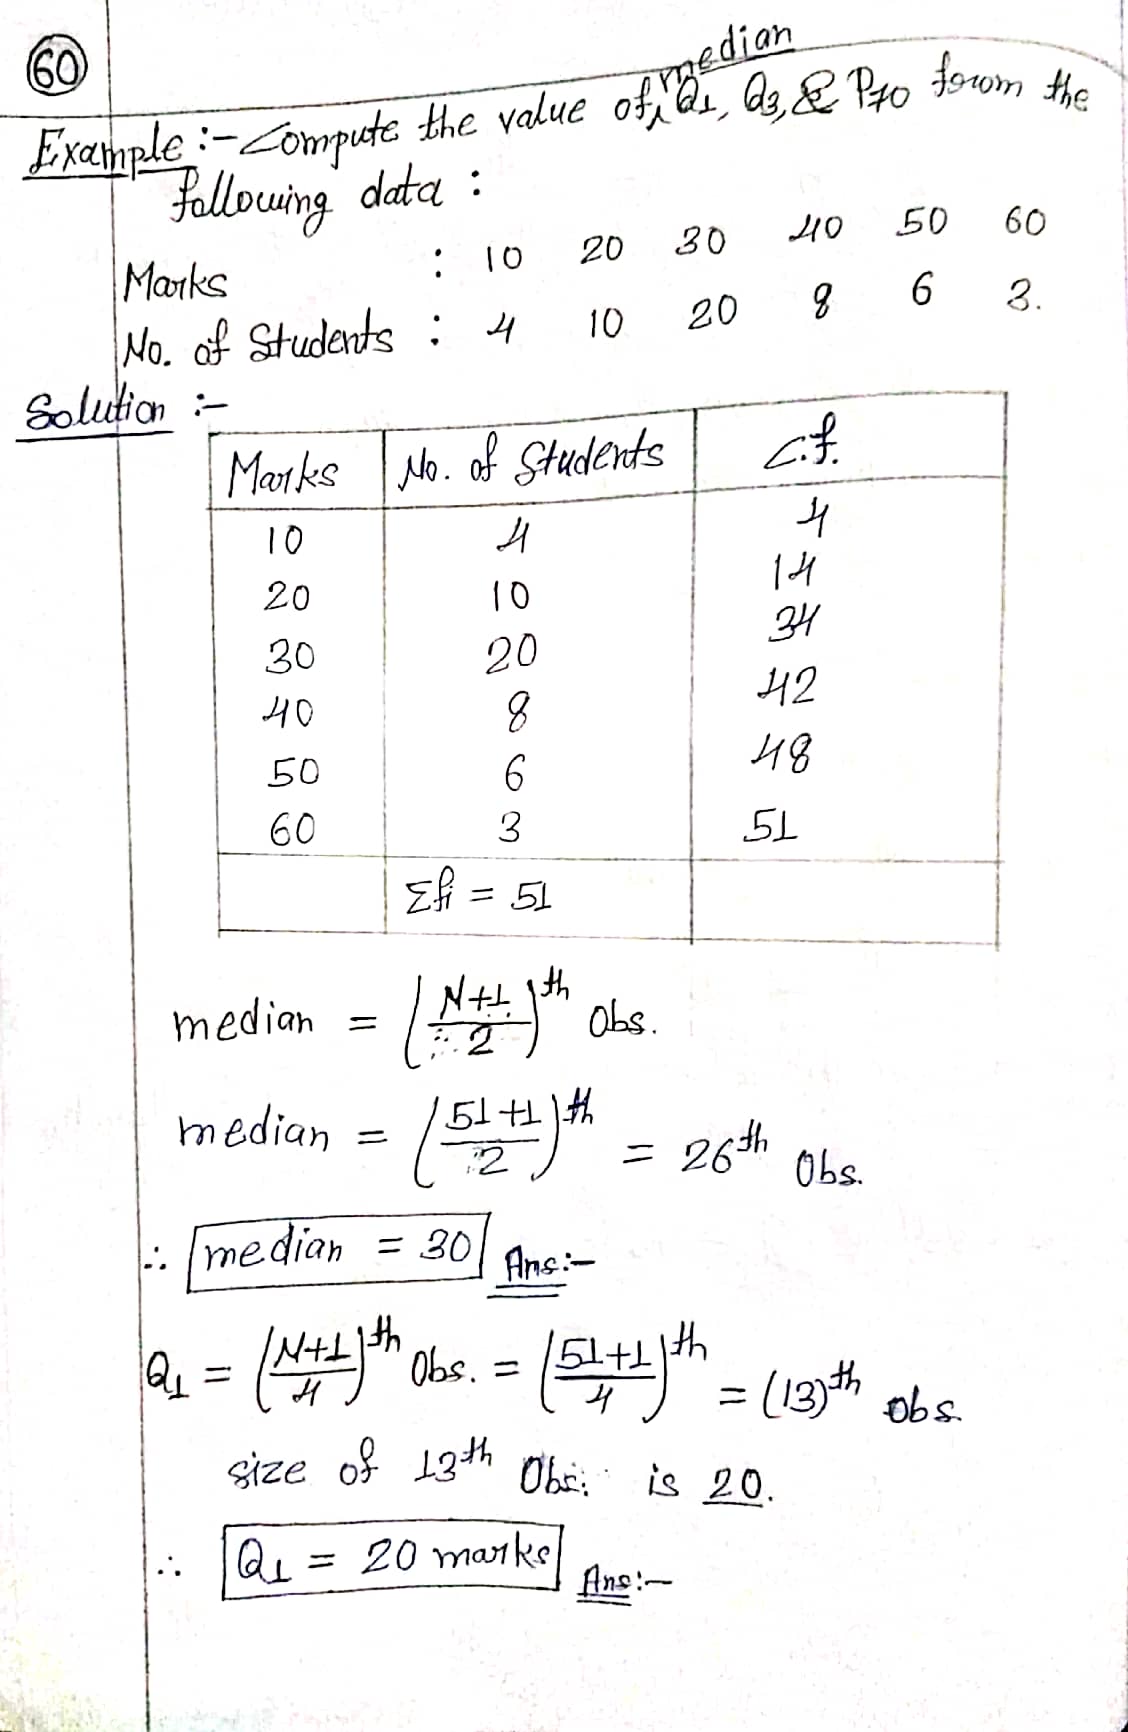 60
Example :- Compute the value of median Q1, Q3, & P70 from the
following data :
Marks : 10 20 30 40 50 60
No. of Students : 4 10 20 8 6 3.
Solution :-
Marks No. of Students c.f.
10 4 4
20 10 14
30 20 34
40 8 42
50 6 48
60 3 51
Σfi = 51
median = (N+1/2)th Obs.
median = (51+1/2)th = 26th Obs.
∴ median = 30 Ans:-
Q1 = (N+1/4)th Obs. = (51+1/4)th = (13)th obs.
size of 13th Obs. is 20.
∴ Q1 = 20 marks Ans:-